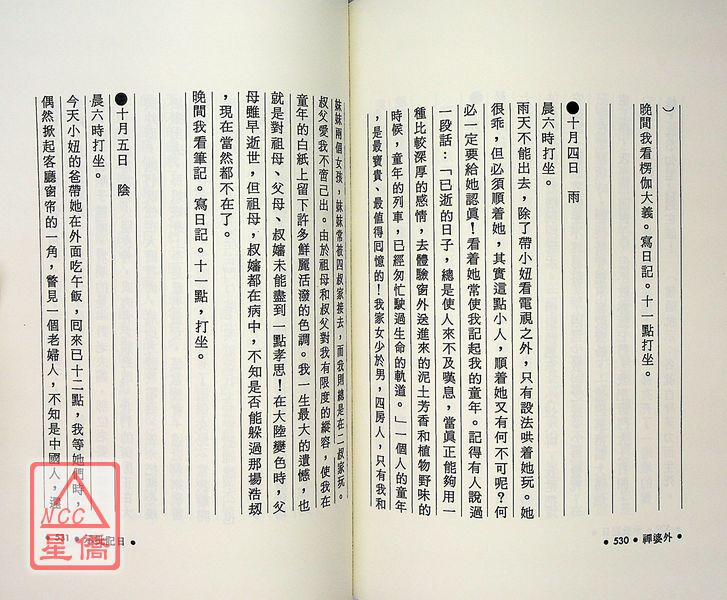 ）
晚間我看楞伽大義。寫日記。十一點打坐。
●十月四日　雨
晨六時打坐。
雨天不能出去，除了帶小妞看電視之外，只有設法哄着她玩。她
很乖，但必須順着她，其實這點小人，順着她又有何不可呢？何
必一定要給她認眞！看着她常使我記起我的童年。記得有人說過
一段話：「已逝的日子，總是使人來不及嘆息，當眞正能夠用一
種比較深厚的感情，去體驗窗外送進來的泥土芳香和植物野味的
時候，童年的列車，已經匆忙駛過生命的軌道。」一個人的童年
，是最寶貴、最值得囘憶的！我家女少於男，四房人，只有我和
•530•禪婆外•
妹妹兩個女孩，妹妹常被四叔家接去，而我則總是在二叔家玩。
叔父愛我不啻己出。由於祖母和叔父對我有限度的縱容，使我在
童年的白紙上留下許多鮮麗活潑的色調。我一生最大的遺憾，也
就是對祖母、父母、叔嬸未能盡到一點孝思！在大陸變色時，父
母雖早逝世，但祖母，叔嬸都在病中，不知是否能躲過那場浩刼
，現在當然都不在了。
晚間我看筆記。寫日記。十一點，打坐。
●十月五日　陰
晨六時打坐。
今天小妞的爸帶她在外面吃午飯，囘來已十二點，我等她們時，
偶然掀起客廳窗帘的一角，瞥見一個老婦人，不知是中國人，還
•531•
記日•
NCC
星僑